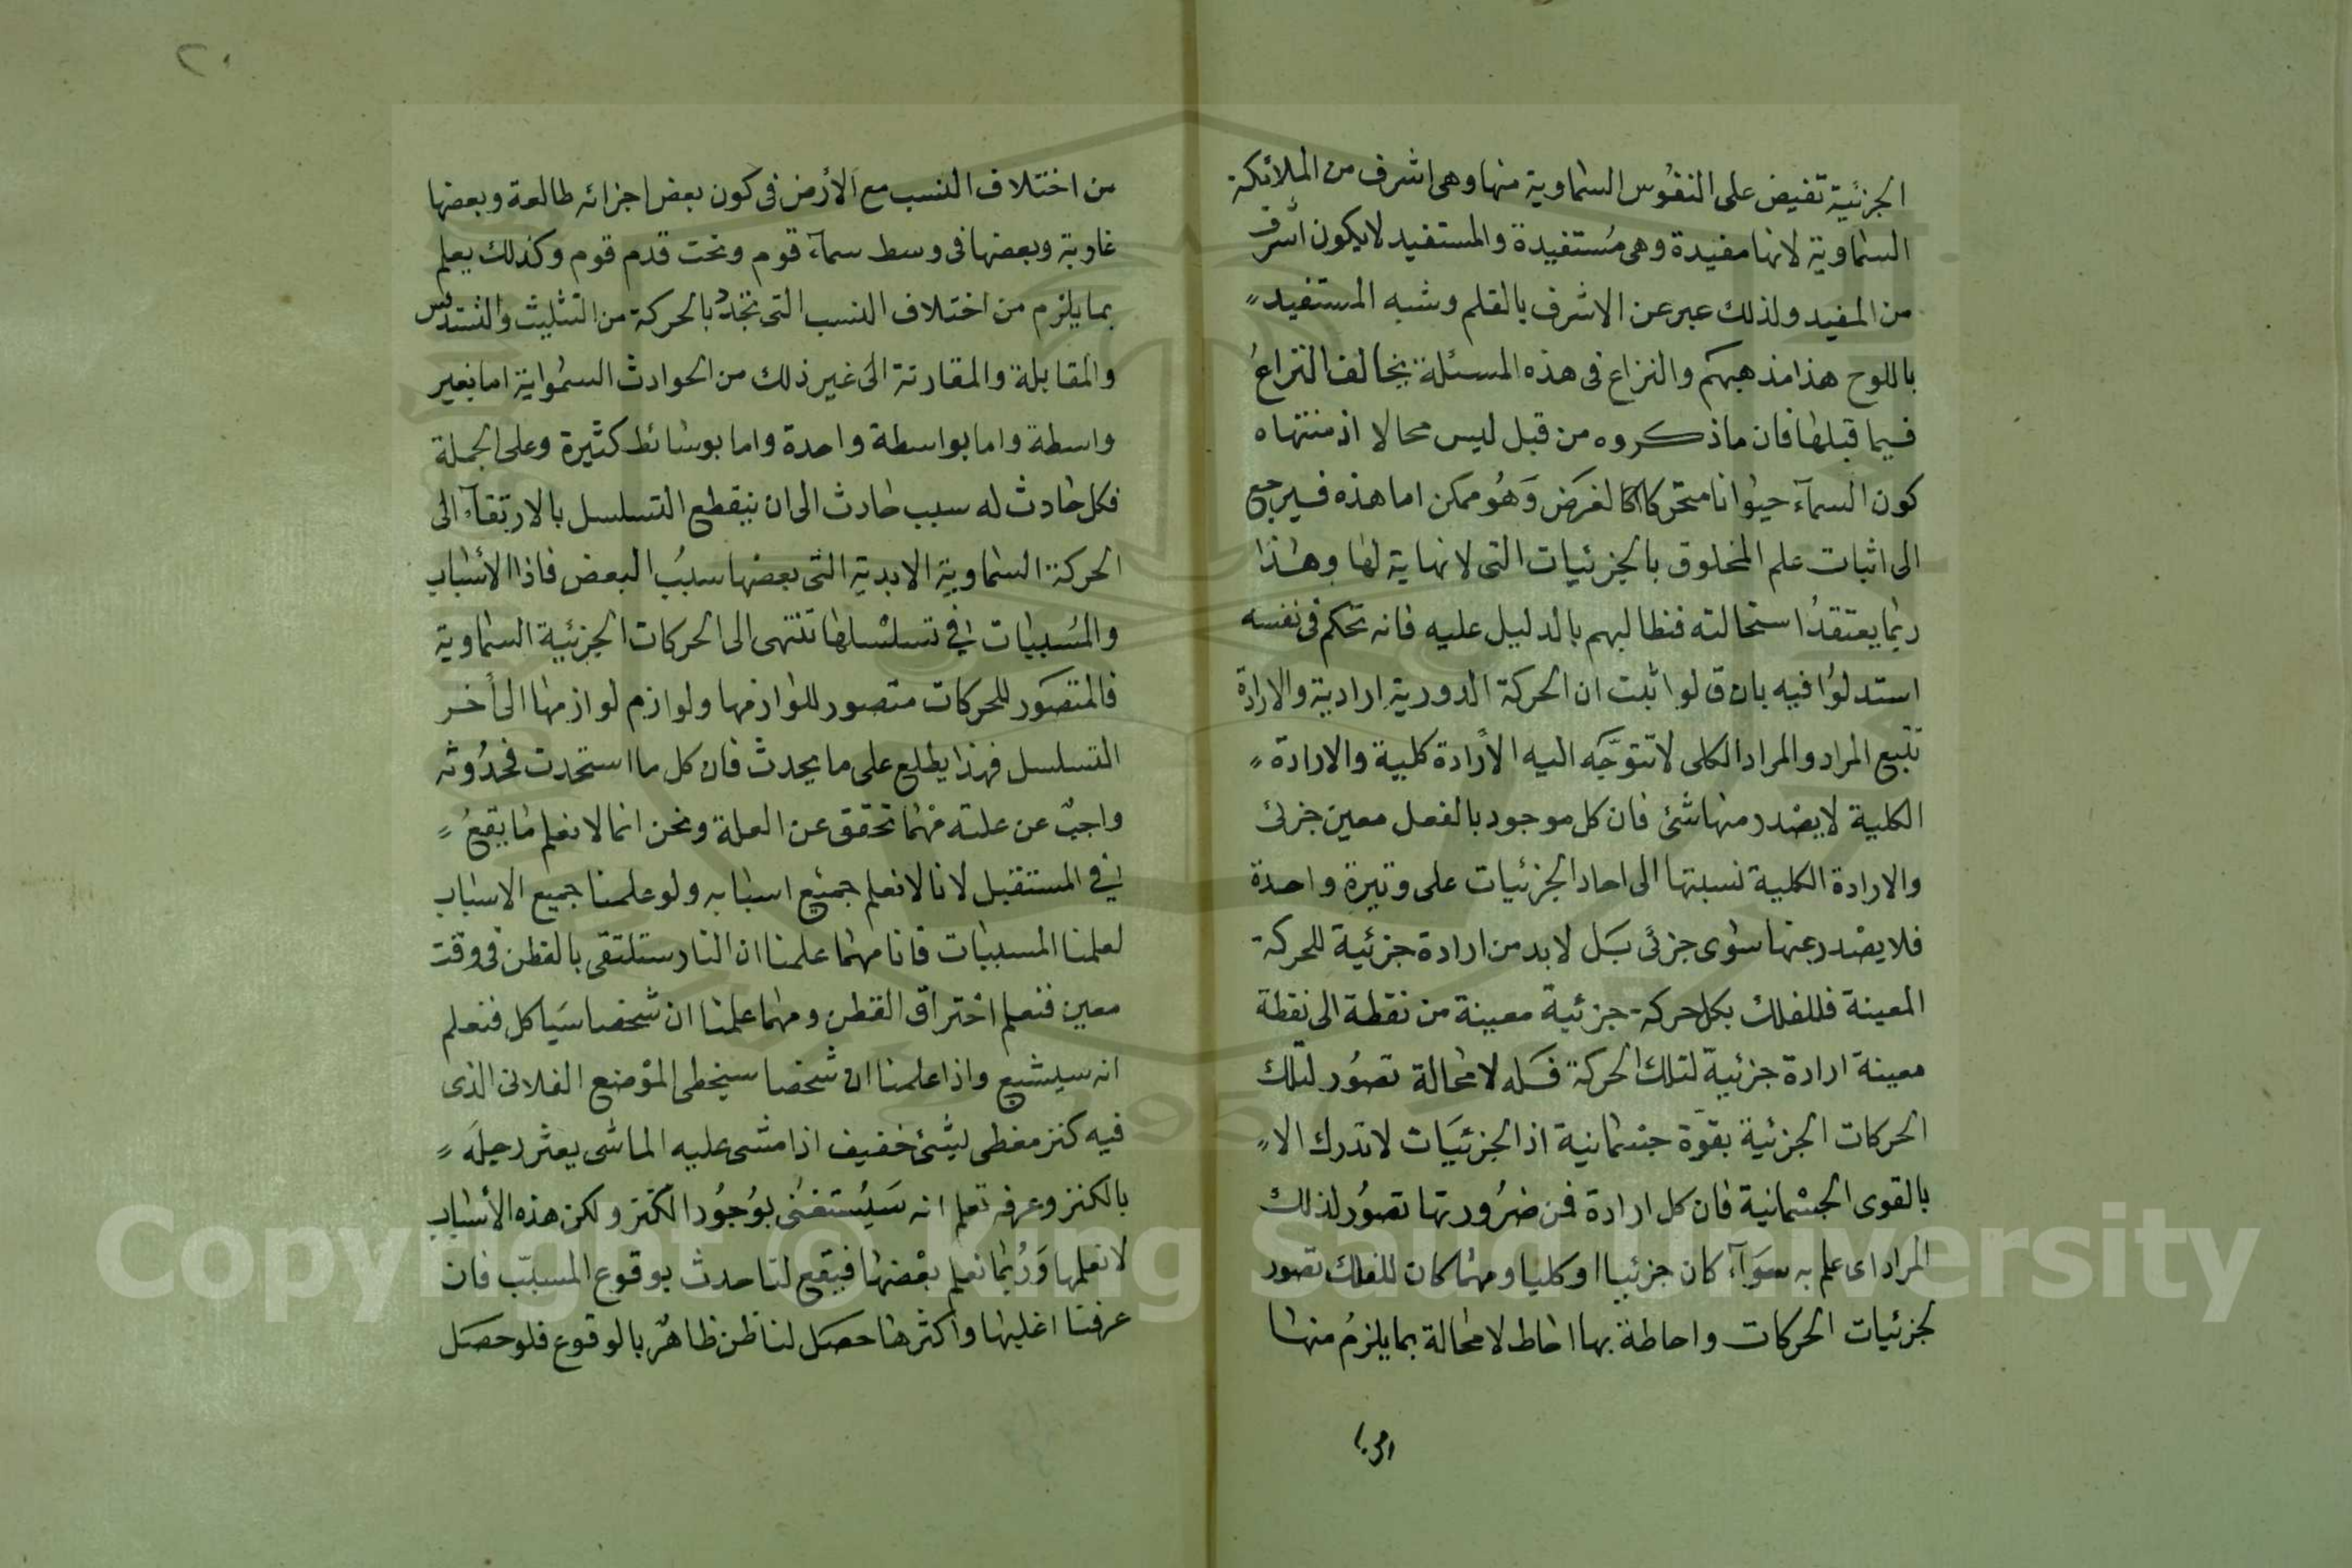 الجزئية تفيض على النفوس السماوية منها وهى اشرف من الملائكة
السماوية لانها مفيدة وهى مستفيدة والمستفيد لا يكون أشرف
من المفيد ولذلك عبر عن الاشرف بالقلم وشبه المستفيد
باللوح هذا مذهبهم والنزاع فى هذه المسئلة يخالف النزاع
فيما قبلها فان ما ذكروه من قبل ليس محالا اذ منتهاه
كون السمآء حيوانا متحركا لغرض وهو ممكن اما هذه فيرجع
الى اثبات علم المخلوق بالجزئيات التى لا نهاية لها وهذا
ربما يعتقد استحالته فنطالبهم بالدليل عليه فانه تحكم فى نفسه
استدلوا فيه بان قالوا ثبت ان الحركة الدورية ارادية والارادة
تتبع المراد والمراد الكلى لا تتوجه اليه الا ارادة كلية والارادة
الكلية لا يصدر منها شئ فان كل موجود بالفعل معين جزئى
والارادة الكلية نسبتها الى احاد الجزئيات على وتيرة واحدة
فلا يصدر عنها سوى جزئى بل لا بد من ارادة جزئية للحركة
المعينة فللفلك بكل حركة جزئية معينة من نقطة الى نقطة
معينة ارادة جزئية لتلك الحركة فله لا محالة تصور لتلك
الحركات الجزئية بقوة جسمانية اذ الجزئيات لا تدرك الا
بالقوى الجسمانية فان كل ارادة فمن ضرورتها تصور لذلك
المراد اى علم به سوآء كان جزئيا او كليا ومهما كان للفلك تصور
لجزئيات الحركات واحاطة بها احاط لا محالة بما يلزم منها
٢٠
من اختلاف النسب مع الأرض فى كون بعض اجزائه طالعة وبعضها
غاوبة وبعضها فى وسط سمآء قوم وتحت قدم قوم وكذلك يعلم
بما يلزم من اختلاف النسب التى تتجدد بالحركة من التثليث والتسديس
والمقابلة والمقارنة الى غير ذلك من الحوادث السموانية اما بغير
واسطة واما بواسطة واحدة واما بوسائط كثيرة وعلى الجملة
فكل حادث له سبب حادث الى ان ينقطع التسلسل بالارتقآء الى
الحركة السماوية الابدية التى بعضها سبب البعض فاذا الأسباب
والمسببات فى تسلسلها تنتهى الى الحركات الجزئية السماوية
فالمتصور للحركات متصور للوازمها ولوازم لوازمها الى أخر
التسلسل فهذا يطلع على ما يحدث فان كل ما استحدث فحدوثه
واجب عن علته مهما تحقق عن العلة ونحن انما لا نعلم ما يقع
فى المستقبل لانا لا نعلم جميع اسبابه ولو علمنا جميع الاسباب
لعلمنا المسببات فانا مهما علمنا ان النار ستلتقى بالقطن فى وقت
معين فنعلم احتراق القطن ومهما علمنا ان شخصا سياكل فنعلم
انه سيشبع واذا علمنا ان شخصا سيخطى الموضع الفلانى الذى
فيه كنز مغطى لبشئ خفيف اذا مشى عليه الماشى يعثر رجله
بالكنز وعرفه نعلم انه سيستغنى بوجود الكنز ولكن هذه الأسباب
لا نعلمها وربما نعلم بعضها فيقع لنا حدث بوقوع المسبب فان
عرفنا اغلبها واكثرها حصل لنا ظن ظاهر بالوقوع فلو حصل
Copyright © King Saud University
1957